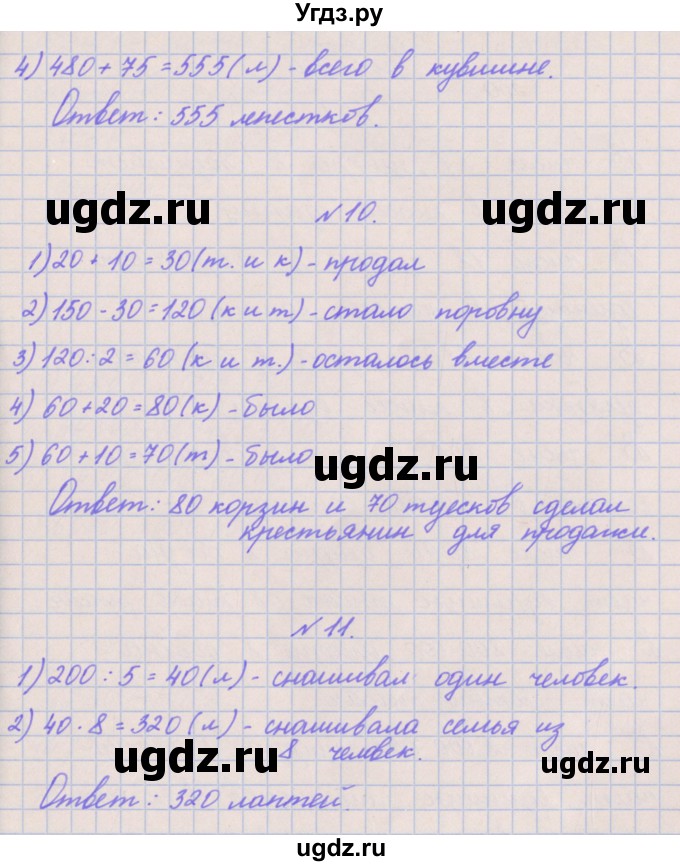 Угдз.ру
4) 480 + 75 = 555 (л) - всего в кувшине.
Ответ: 555 лепестков.
ugdz.ru ugdz.ru
№ 10.
1) 20 + 10 = 30 (т. и к) - продал
2) 150 - 30 = 120 (к и т) - стало поровну
3) 120 : 2 = 60 (к и т.) - осталось вместе
4) 60 + 20 = 80 (к) - было
5) 60 + 10 = 70 (т) - было
ugdz.ru
Ответ: 80 корзин и 70 туесков сделал
крестьянин для продажи.
№ 11.
1) 200 : 5 = 40 (л) - снашивал один человек.
2) 40 · 8 = 320 (л) - снашивала семья из
8 человек.
ugdz.ru ugdz.ru
Ответ: 320 лаптей.
ugdz.ru